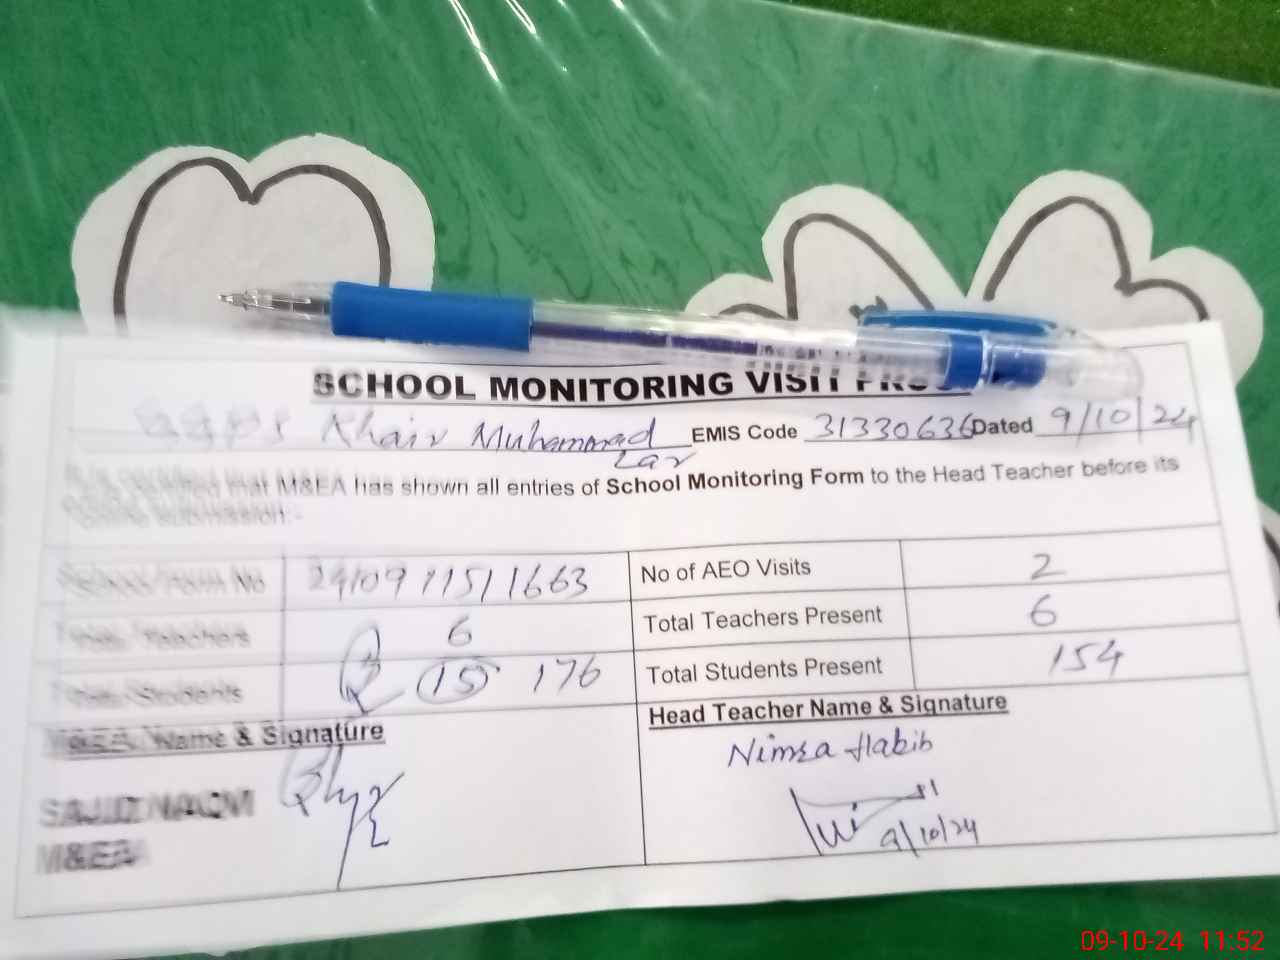 SCHOOL MONITORING VISIT
GGPS Khair Muhammad EMIS Code 31330636 Dated 9/10/24
Lar
It is certified that M&EA has shown all entries of School Monitoring Form to the Head Teacher before its
online submission:-
School Form No No of AEO Visits 2
Total Teachers 6 Total Teachers Present 6
Total Students 15 176 Total Students Present 154
M&EA Name & Signature Head Teacher Name & Signature
Nimra Habib
SAJID NAQVI
M&EA 9/10/24
09-10-24 11:52